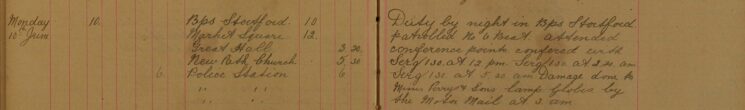 Monday 10. Bps Stortford. 10 Duty by night in Bps Stortford
10th June Market Square 12. patrolled No 6 Beat attended
Great Hall 2.20. conference points confered with
New Bath Church 5.30 Serg 130 at 12. pm. Serg 130 at 2.20 am
6. Police Station 6 Serg 130 at 5.30 am Damage done to
" " " Messrs & Sons lamp Globes by
the Motor Mail at 3 am